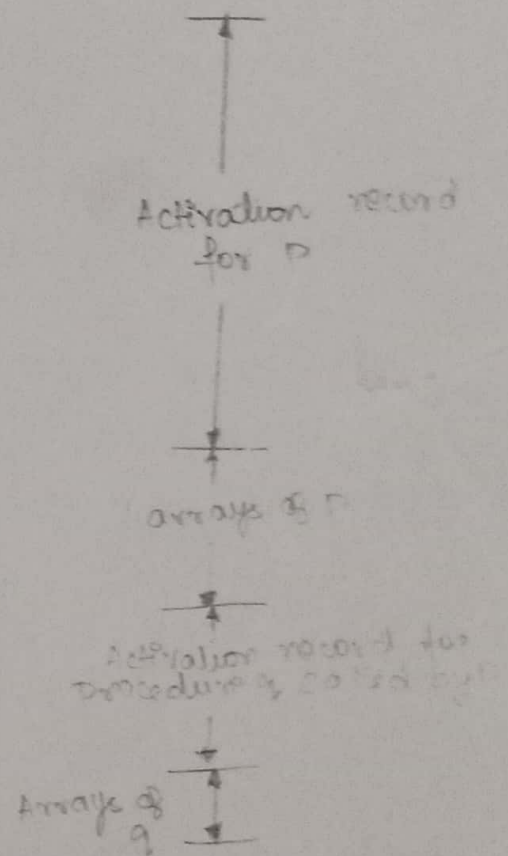 Activation record
for P
arrays of
Activation record for
procedure q called by
Arrays of
q